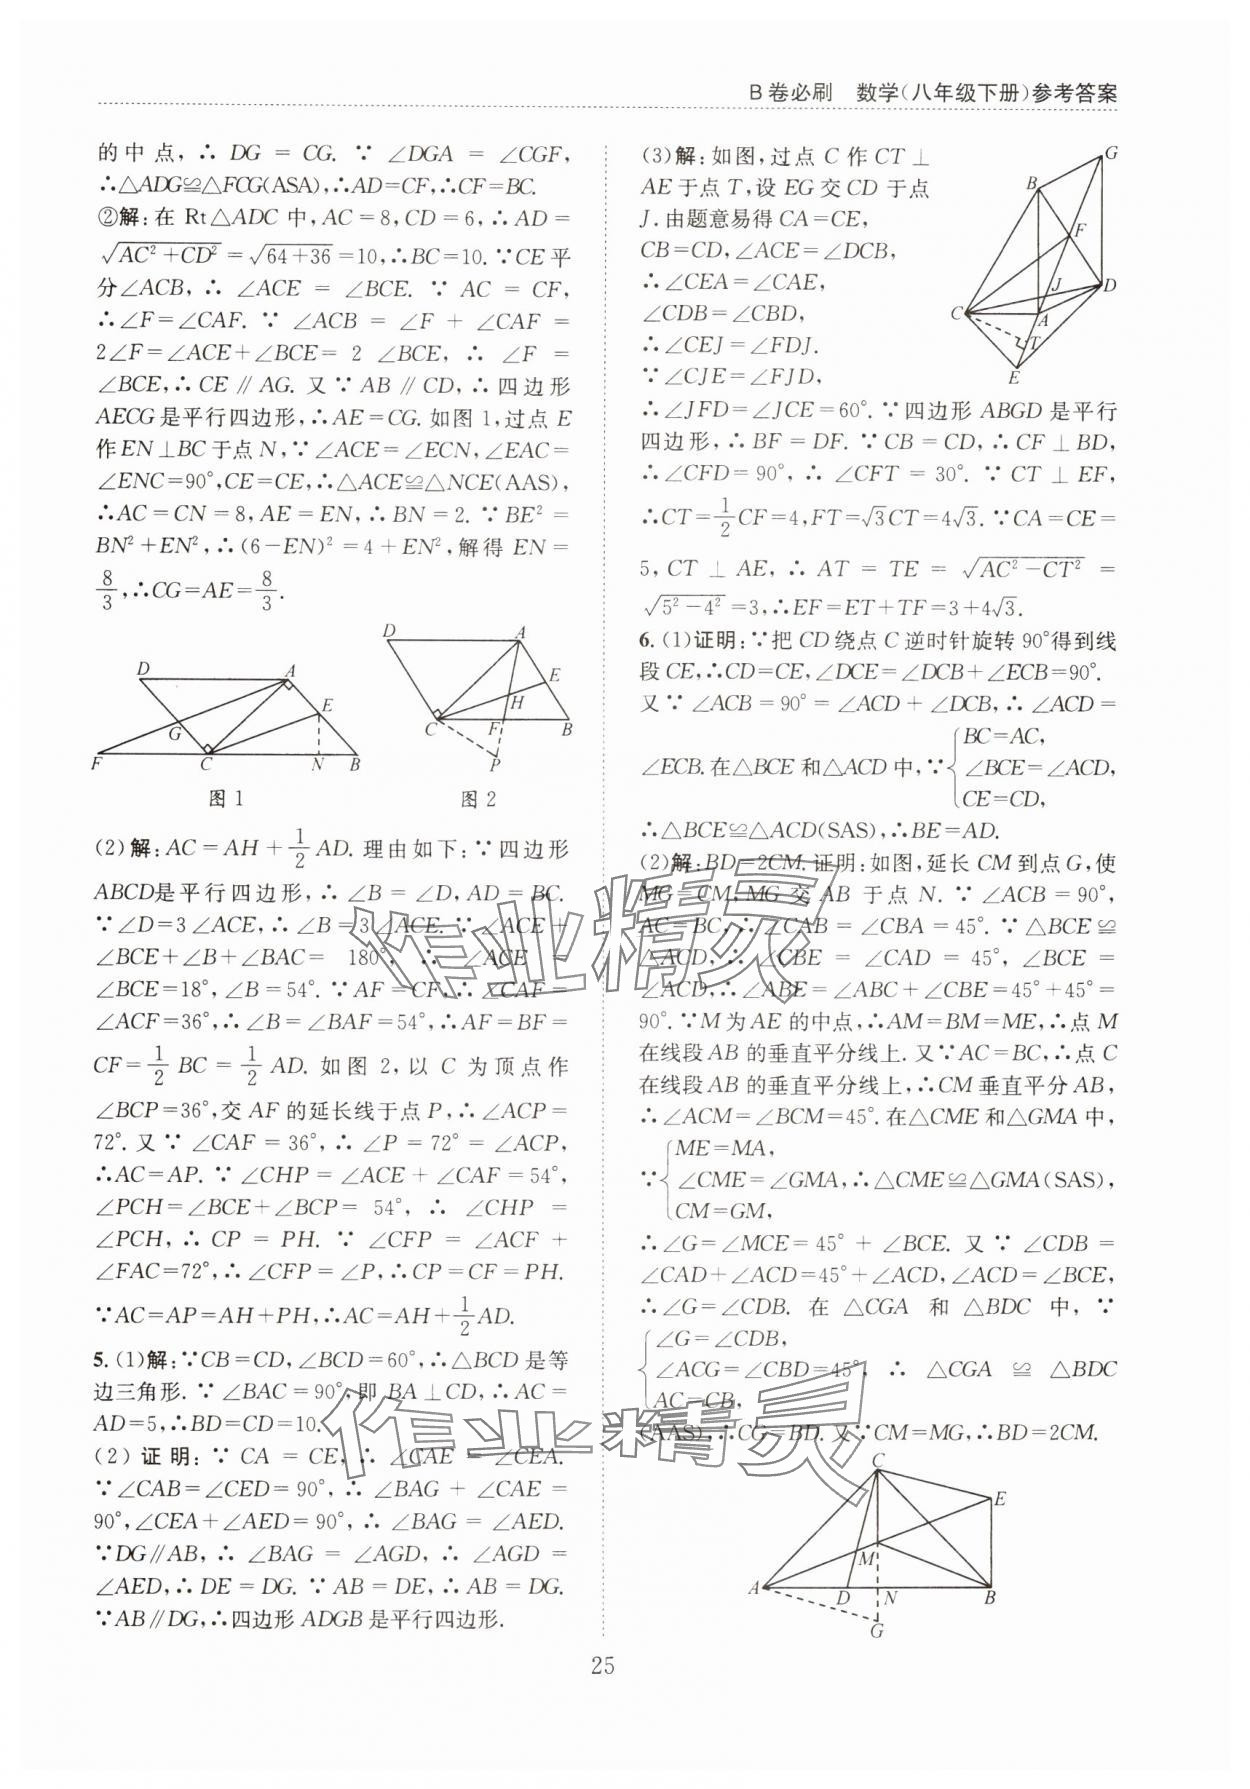 B卷必刷 数学(八年级下册)参考答案
的中点,∴DG=CG.∵∠DGA=∠CGF,
∴△ADG≌△FCG(ASA),∴AD=CF,∴CF=BC.
②解:在 Rt△ADC 中,AC=8,CD=6,∴AD=
√(AC²+CD²)=√(64+36)=10,∴BC=10.∵CE平
分∠ACB,∴∠ACE=∠BCE.∵AC=CF,
∴∠F=∠CAF.∵∠ACB=∠F+∠CAF=
2∠F=∠ACE+∠BCE=2∠BCE,∴∠F=
∠BCE,∴CE∥AG.又∵AB∥CD,∴四边形
AECG是平行四边形,∴AE=CG.如图1,过点E
作EN⊥BC于点N,∵∠ACE=∠ECN,∠EAC=
∠ENC=90°,CE=CE,∴△ACE≌△NCE(AAS),
∴AC=CN=8,AE=EN,∴BN=2.∵BE²=
BN²+EN²,∴(6-EN)²=4+EN²,解得EN=
8/3,∴CG=AE=8/3.
D A E G F C N B
图1
D A E H C F B P
图2
(2)解:AC=AH+1/2AD.理由如下:∵四边形
ABCD是平行四边形,∴∠B=∠D,AD=BC.
∵∠D=3∠ACE,∴∠B=3∠ACE.∵∠ACE+
∠BCE+∠B+∠BAC=180°,∴∠ACE=
∠BCE=18°,∠B=54°.∵AF=CF,∴∠CAF=
∠ACF=36°,∴∠B=∠BAF=54°,∴AF=BF=
CF=1/2BC=1/2AD.如图2,以C为顶点作
∠BCP=36°,交AF的延长线于点P,∴∠ACP=
72°.又∵∠CAF=36°,∴∠P=72°=∠ACP,
∴AC=AP.∵∠CHP=∠ACE+∠CAF=54°,
∠PCH=∠BCE+∠BCP=54°,∴∠CHP=
∠PCH,∴CP=PH.∵∠CFP=∠ACF+
∠FAC=72°,∴∠CFP=∠P,∴CP=CF=PH.
∵AC=AP=AH+PH,∴AC=AH+1/2AD.
5.(1)解:∵CB=CD,∠BCD=60°,∴△BCD是等
边三角形.∵∠BAC=90°,即BA⊥CD,∴AC=
AD=5,∴BD=CD=10.
(2)证明:∵CA=CE,∴∠CAE=∠CEA.
∵∠CAB=∠CED=90°,∴∠BAG+∠CAE=
90°,∠CEA+∠AED=90°,∴∠BAG=∠AED.
∵DG∥AB,∴∠BAG=∠AGD,∴∠AGD=
∠AED,∴DE=DG.∵AB=DE,∴AB=DG.
∵AB∥DG,∴四边形ADGB是平行四边形.
(3)解:如图,过点C作CT⊥
AE于点T,设EG交CD于点
J.由题意易得CA=CE,
CB=CD,∠ACE=∠DCB,
∴∠CEA=∠CAE,
∠CDB=∠CBD,
∴∠CEJ=∠FDJ.
∵∠CJE=∠FJD,
G B F J D C A T E
∴∠JFD=∠JCE=60°.∵四边形ABGD是平行
四边形,∴BF=DF.∵CB=CD,∴CF⊥BD,
∴∠CFD=90°,∴∠CFT=30°.∵CT⊥EF,
∴CT=1/2CF=4,FT=√3CT=4√3.∵CA=CE=
5,CT⊥AE,∴AT=TE=√(AC²-CT²)=
√(5²-4²)=3,∴EF=ET+TF=3+4√3.
6.(1)证明:∵把CD绕点C逆时针旋转90°得到线
段CE,∴CD=CE,∠DCE=∠DCB+∠ECB=90°.
又∵∠ACB=90°=∠ACD+∠DCB,∴∠ACD=
∠ECB.在△BCE和△ACD中,∵{BC=AC,
∠BCE=∠ACD,
CE=CD,
∴△BCE≌△ACD(SAS),∴BE=AD.
(2)解:BD=2CM.证明:如图,延长CM到点G,使
MG=CM,MG交AB于点N.∵∠ACB=90°,
AC=BC,∴∠CAB=∠CBA=45°.∵△BCE≌
△ACD,∴∠CBE=∠CAD=45°,∠BCE=
∠ACD,∴∠ABE=∠ABC+∠CBE=45°+45°=
90°.∵M为AE的中点,∴AM=BM=ME,∴点M
在线段AB的垂直平分线上.又∵AC=BC,∴点C
在线段AB的垂直平分线上,∴CM垂直平分AB,
∴∠ACM=∠BCM=45°.在△CME和△GMA中,
∵{ME=MA,
∠CME=∠GMA,∴△CME≌△GMA(SAS),
CM=GM,
∴∠G=∠MCE=45°+∠BCE.又∵∠CDB=
∠CAD+∠ACD=45°+∠ACD,∠ACD=∠BCE,
∴∠G=∠CDB.在△CGA和△BDC中,∵
{∠G=∠CDB,
∠ACG=∠CBD=45°,∴△CGA≌△BDC
AC=CB,
(AAS),∴CG=BD.又∵CM=MG,∴BD=2CM.
C E M A D N B G
作业精灵
作业精灵
25